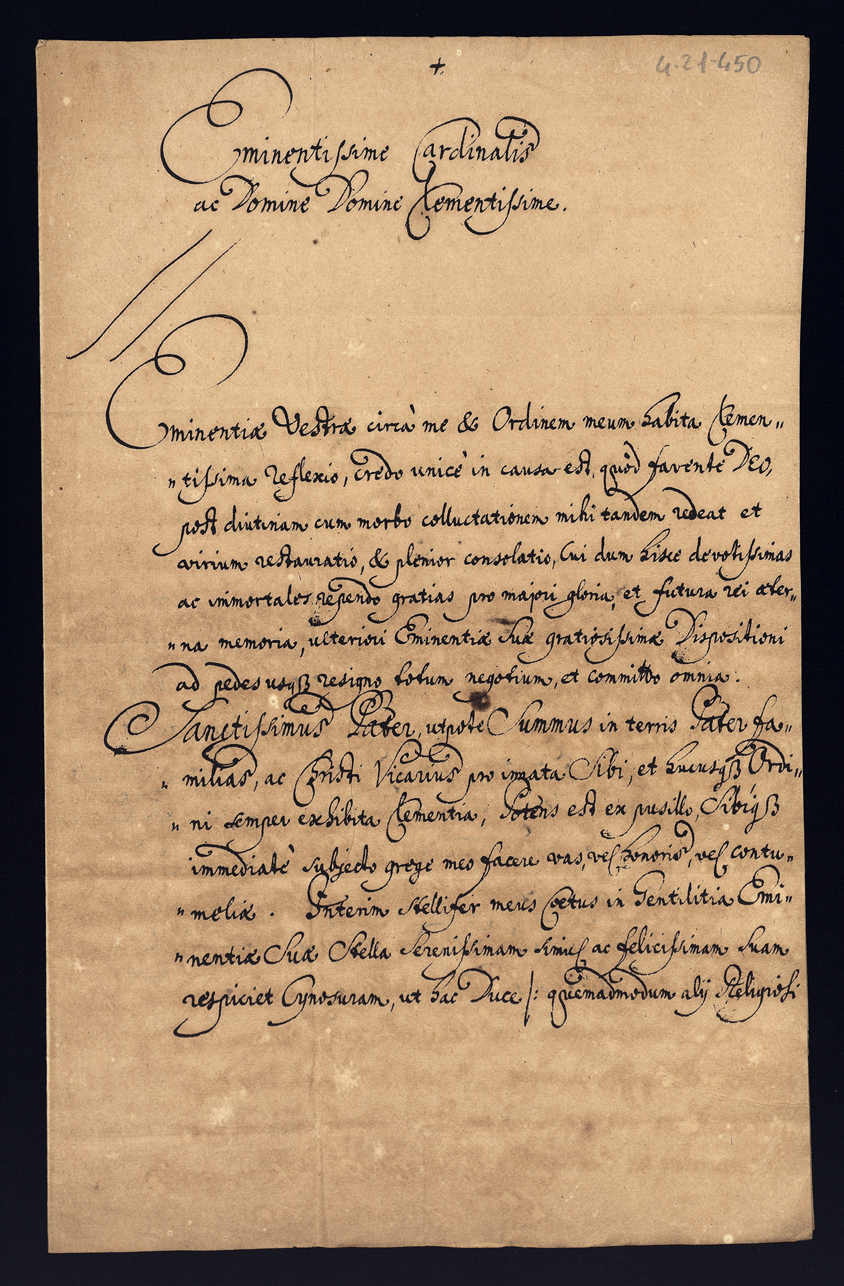 +
4-21-450
Eminentissime Cardinalis
ac Domine Domine Clementissime.
Eminentiæ Vestræ circà me & Ordinem meum habita Clemen„
„tissima reflexio, credo unicè in causa est, quòd favente DEO,
post diutinam cum morbo colluctationem mihi tandem redeat et
virium restauratio, & plenior consolatio, Cui dum hisce devotissimas
ac immortales rependo gratias pro majori gloria, et futura rei æter„
„na memoria, ulteriori Eminentiæ Suæ gratiosissimæ Dispositioni
ad pedes usqȝ resigno totum negotium, et committo omnia.
Sanctissimus Pater, utpote Summus in terris Pater fa„
„milias, ac Christi Vicarius pro innata Sibi, et hucusqȝ Ordi„
„ni semper exhibita Clementia, Potens est ex pusillo, Sibíqȝ
immediatè subjecto grege meo facere vas, vel honoris, vel contu„
„meliæ. Interim stellifer meus Cœtus in Gentilitia Emi„
„nentiæ Suæ Stella Serenissimam simul ac felicissimam suam
respiciet Cynosuram, ut hac Duce /: quemadmodum alij Religiosi